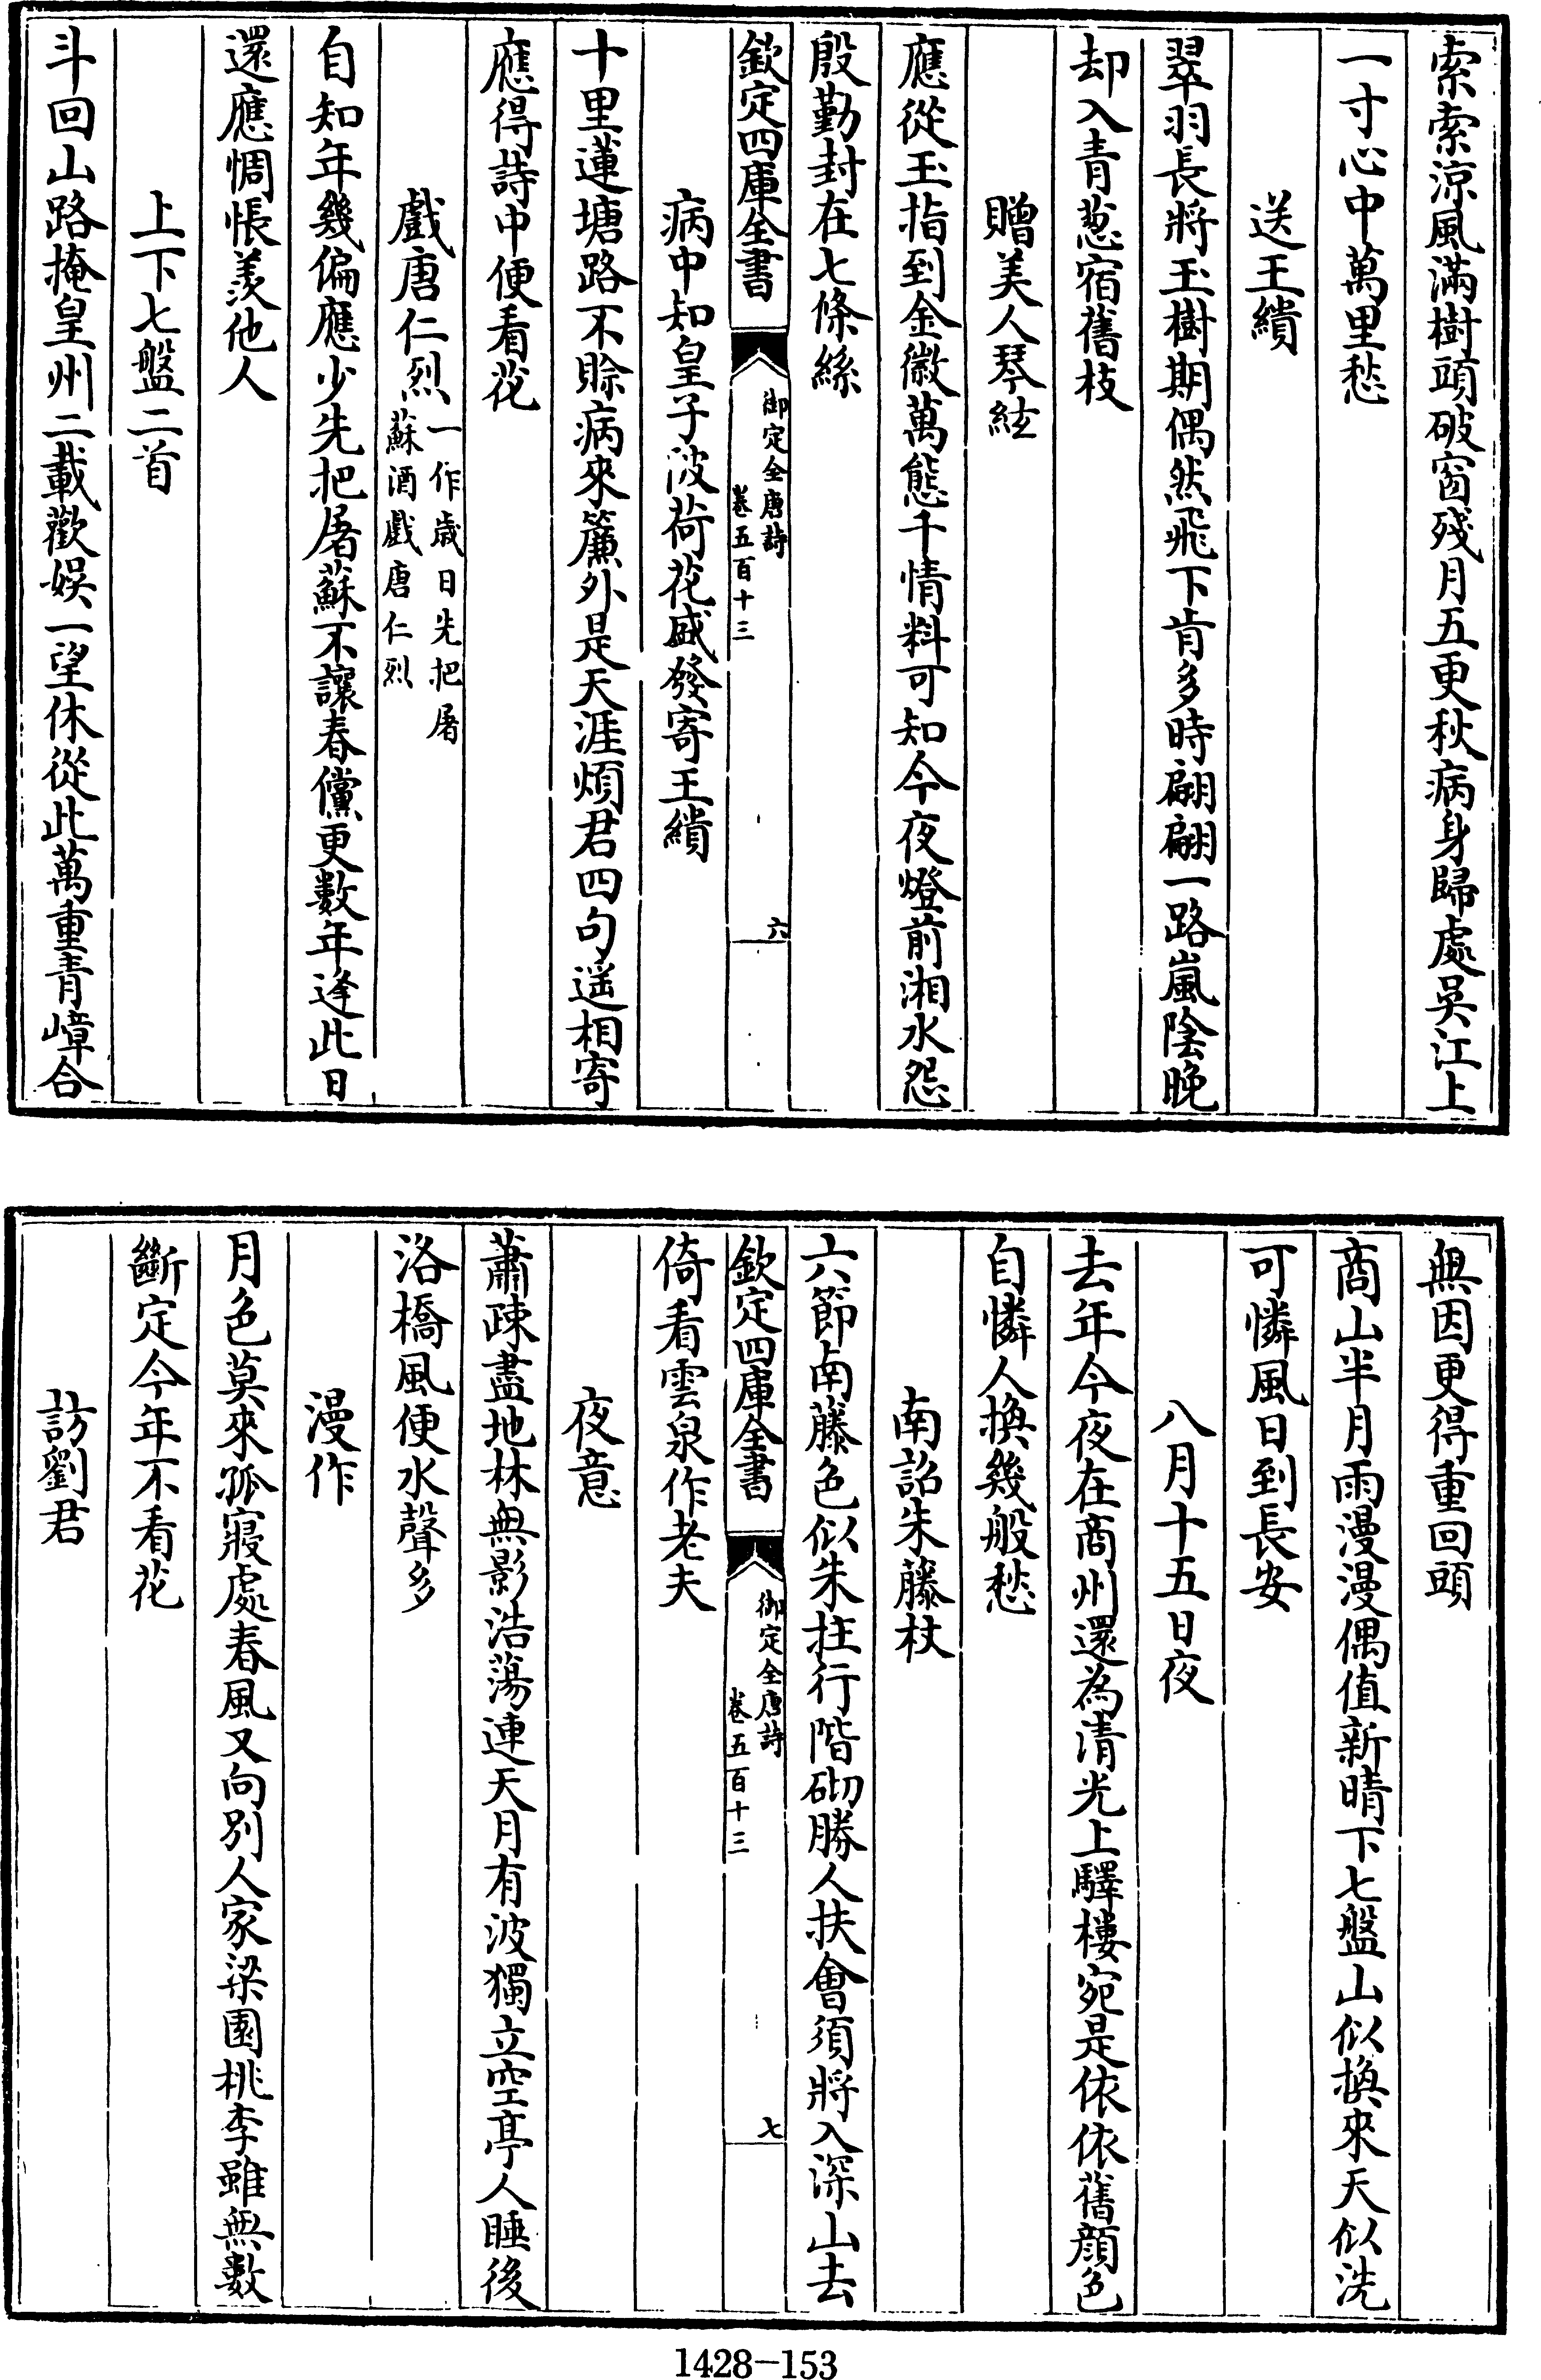 索索涼風滿樹頭破窗殘月五更秋病身歸處吳江上
一寸心中萬里愁
送王繢
翠羽長將玉樹期偶然飛下肯多時翩翩一路嵐陰晚
却入青葱宿舊枝
贈美人琴絃
應從玉指到金徽萬態千情料可知今夜燈前湘水怨
殷勤封在七條絲
欽定四庫全書
御定全唐詩
卷五百十三
六
病中知皇子陂荷花盛發寄王繢
十里蓮塘路不賒病來簾外是天涯煩君四句遥相寄
應得詩中便看花
戲唐仁烈一作歲日先把屠
蘇酒戲唐仁烈
自知年幾偏應少先把屠蘇不讓春儻更數年逢此日
還應惆悵羨他人
上下七盤二首
斗回山路掩皇州二載歡娱一望休從此萬重青嶂合
無因更得重回頭
商山半月雨漫漫偶值新晴下七盤山似換來天似洗
可憐風日到長安
八月十五日夜
去年今夜在商州還為清光上驛樓宛是依依舊顔色
自憐人換幾般愁
南詔朱藤杖
六節南藤色似朱拄行階砌勝人扶會須將入深山去
欽定四庫全書
御定全唐詩
卷五百十三
七
倚看雲泉作老夫
夜意
蕭疎盡地林無影浩蕩連天月有波獨立空亭人睡後
洛橋風便水聲多
漫作
月色莫來孤寢處春風又向别人家梁園桃李雖無數
斷定今年不看花
訪劉君
1428-153